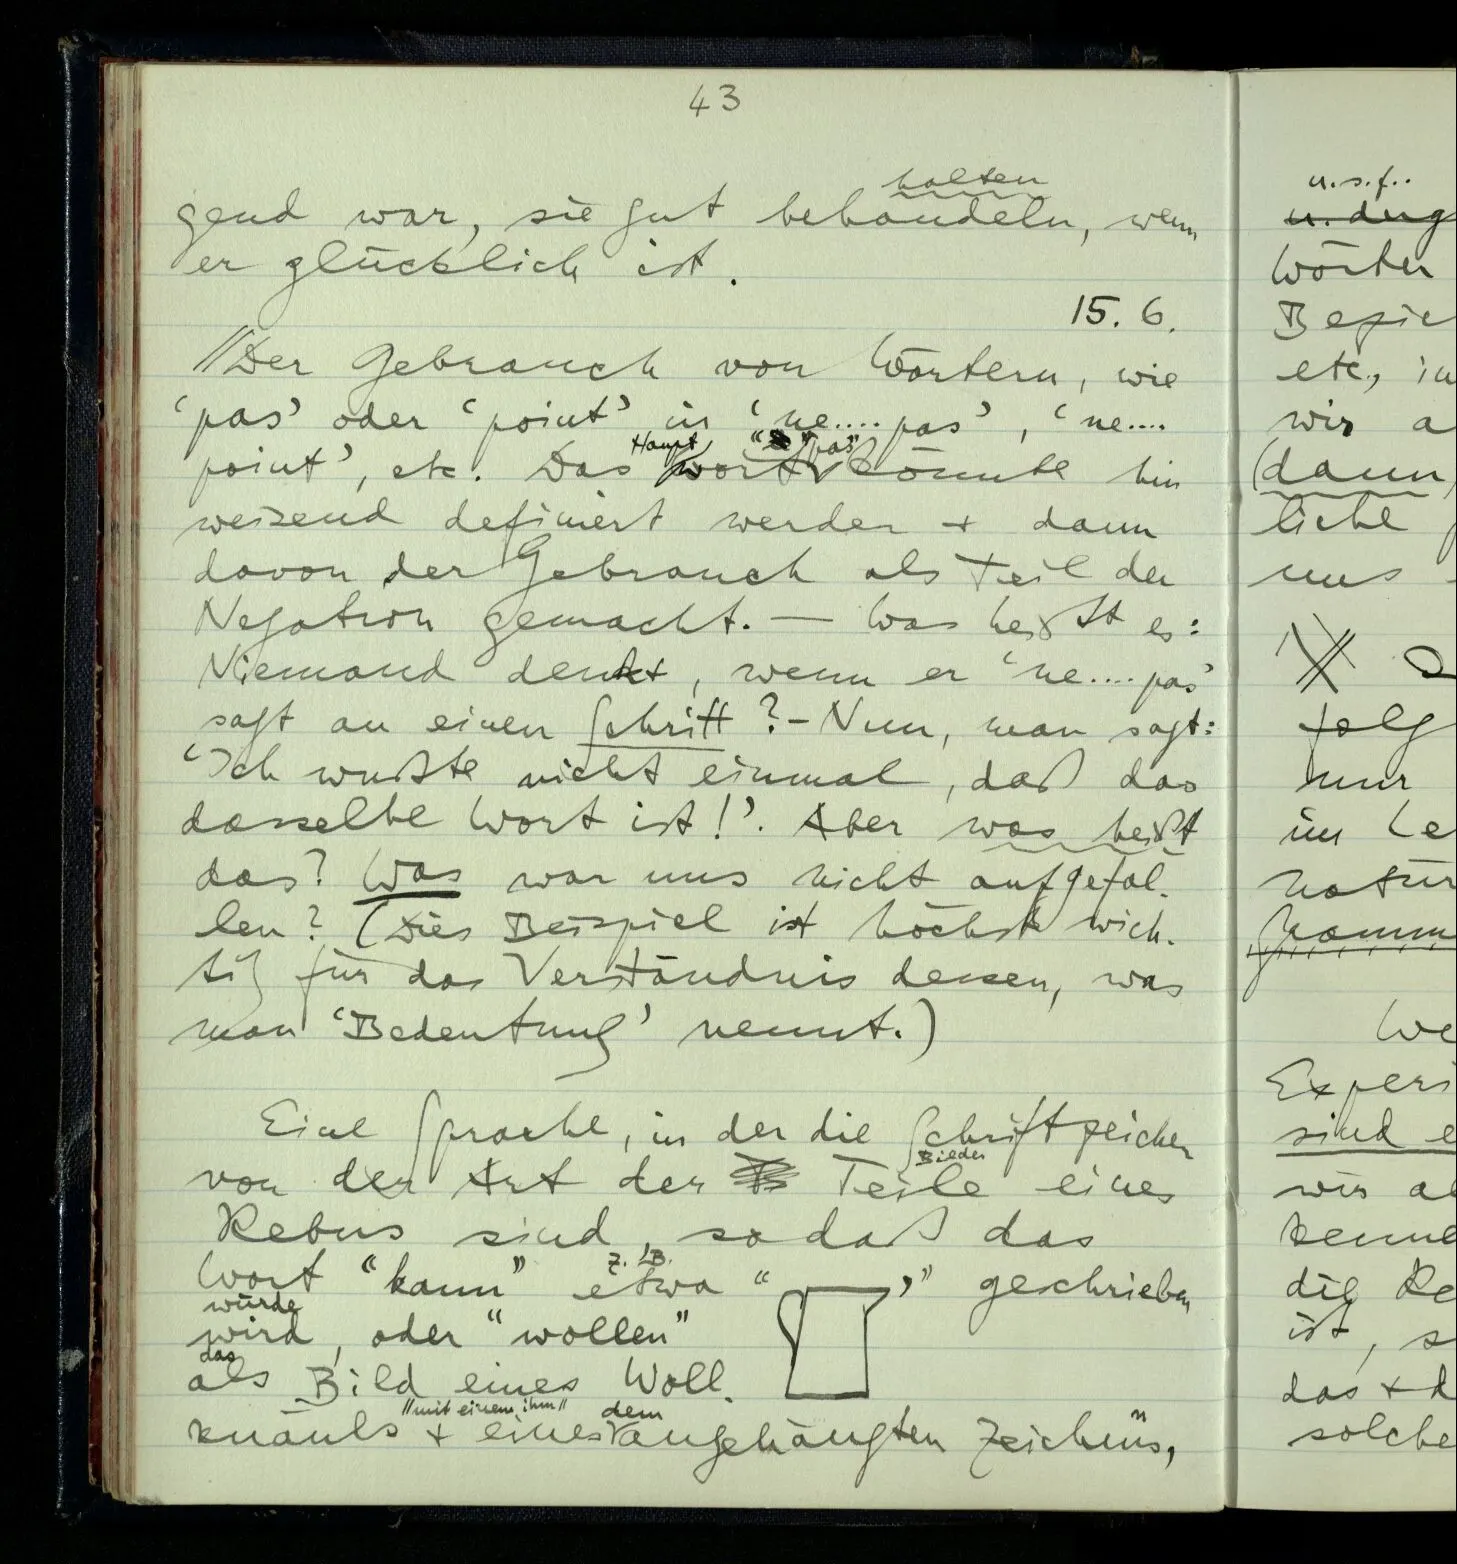 43
halten
gend war, sie gut behandeln, wenn
er glücklich ist.
15. 6.
//Der Gebrauch von Wörtern, wie
‘pas’ oder ‘point’ in ‘ne....pas’, ‘ne....
Haupt “pas”
point’, etc. Das Wort könnte hin
weisend definiert werden + dann
davon der Gebrauch als Teil der
Negation gemacht. — Was heißt es:
Niemand denkt, wenn er ‘ne....pas’
sagt an einen Schritt? – Nun, man sagt:
‘Ich wußte nicht einmal, daß das
dasselbe Wort ist!’. Aber was heißt
das? Was war uns nicht aufgefal-
len? (Dies Beispiel ist höchst wich-
tig für das Verständnis dessen, was
man ‘Bedeutung’ nennt.)
Eine Sprache, in der die Schriftzeichen
Bilder
von der Art der Teile eines
Rebus sind, so daß das
z.B.
Wort “kann” etwa “ ’” geschrieben
würde
wird, oder “wollen”
das
als Bild eines Woll-
“mit einem ihm” dem
knäuls + eines angehängten Zeichens,
u.s.f..
u. derg
Wörter
Bezie
etc., in
wir a
(dann,
liche
uns
folg
nur
im Le
natür
Gramm
We
Experi
sind e
wir al
kenne
die Re
ist, s
das + d
solche